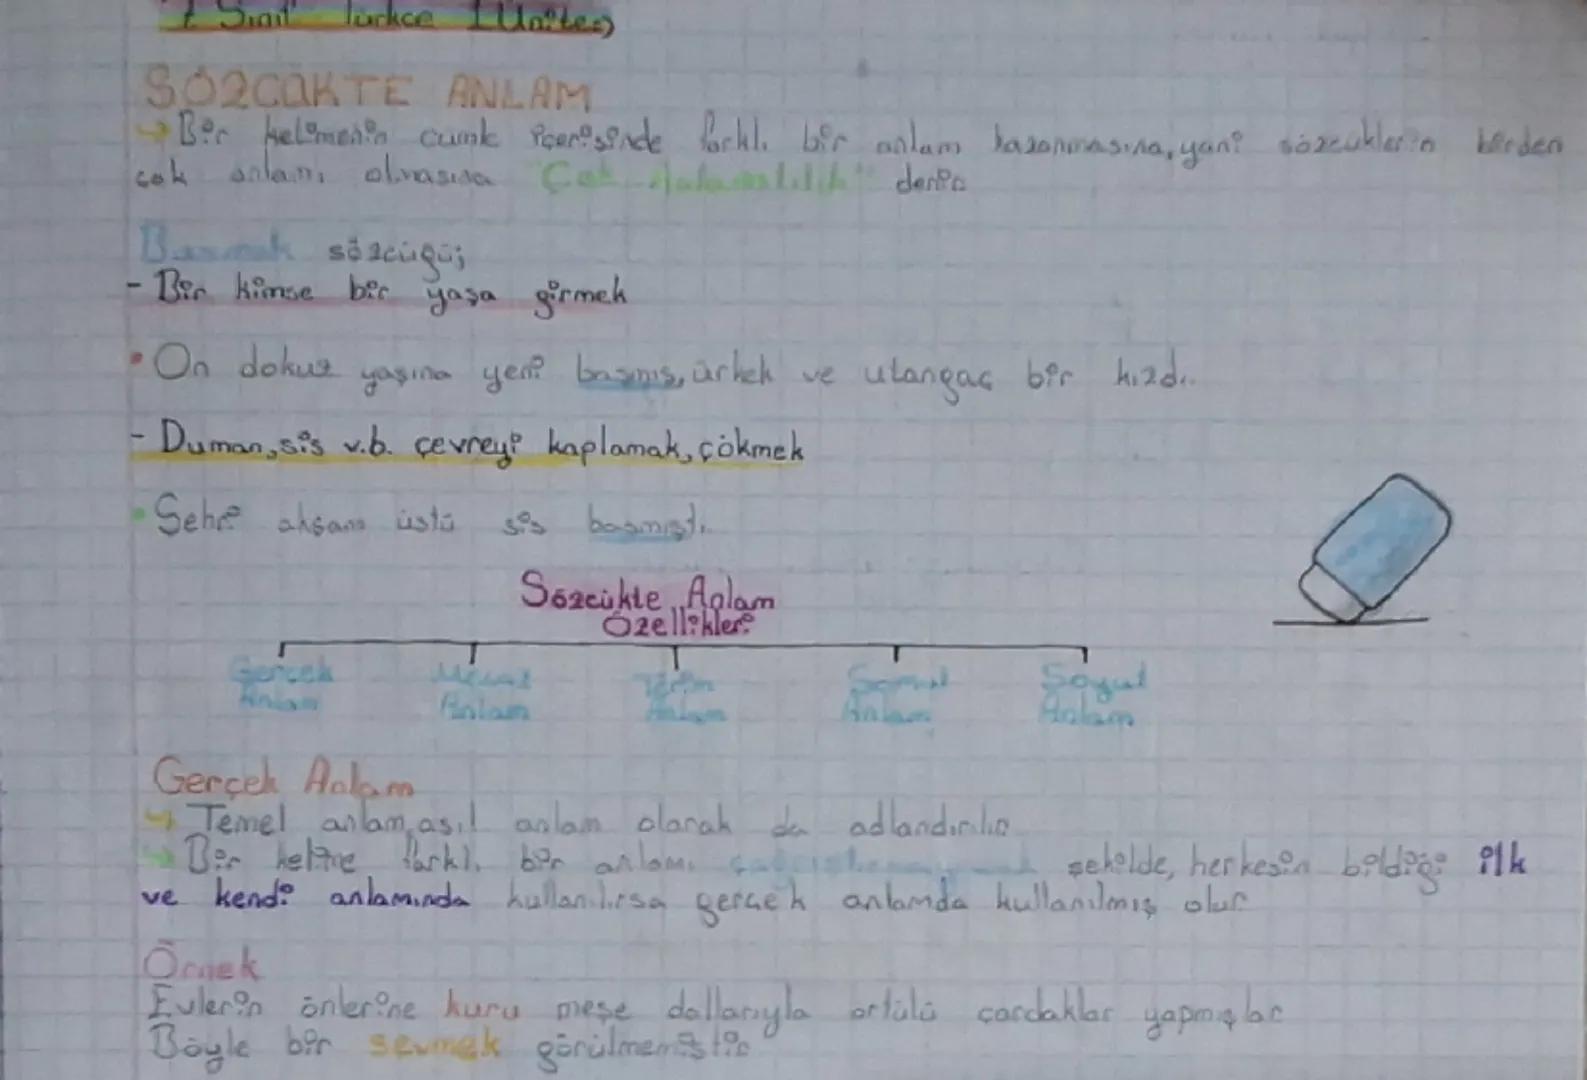 7. Sınıf Türkçe 1. Ünite
SÖZCÜKTE ANLAM
Bir kelimenin cümle içerisinde farklı bir anlam kazanmasına, yani sözcüklerin birden
çok anlamı olmasına "Çok Anlamlılık" denir
Basmak sözcüğü;
- Bir kimse bir yaşa girmek
• On dokuz yaşına yeni basmış, ürkek ve utangaç bir kızdı.
- Duman, sis v.b. çevreyi kaplamak, çökmek
• Şehri akşam üstü sis basmıştı.
Sözcükte Anlam
Özellikleri
Gerçek Anlam
Mecaz Anlam
Terim Anlam
Somut Anlam
Soyut Anlam
Gerçek Anlam
Temel anlam, asıl anlam olarak da adlandırılır
Bir kelime farklı bir anlamı çağrıştırmayacak şekilde, herkesin bildiği ilk
ve kendi anlamında kullanılırsa gerçek anlamda kullanılmış olur
Örnek
Evlerin önlerine kuru meşe dallarıyla örtülü çardaklar yapmışlar
Böyle bir sevmek görülmemiştir